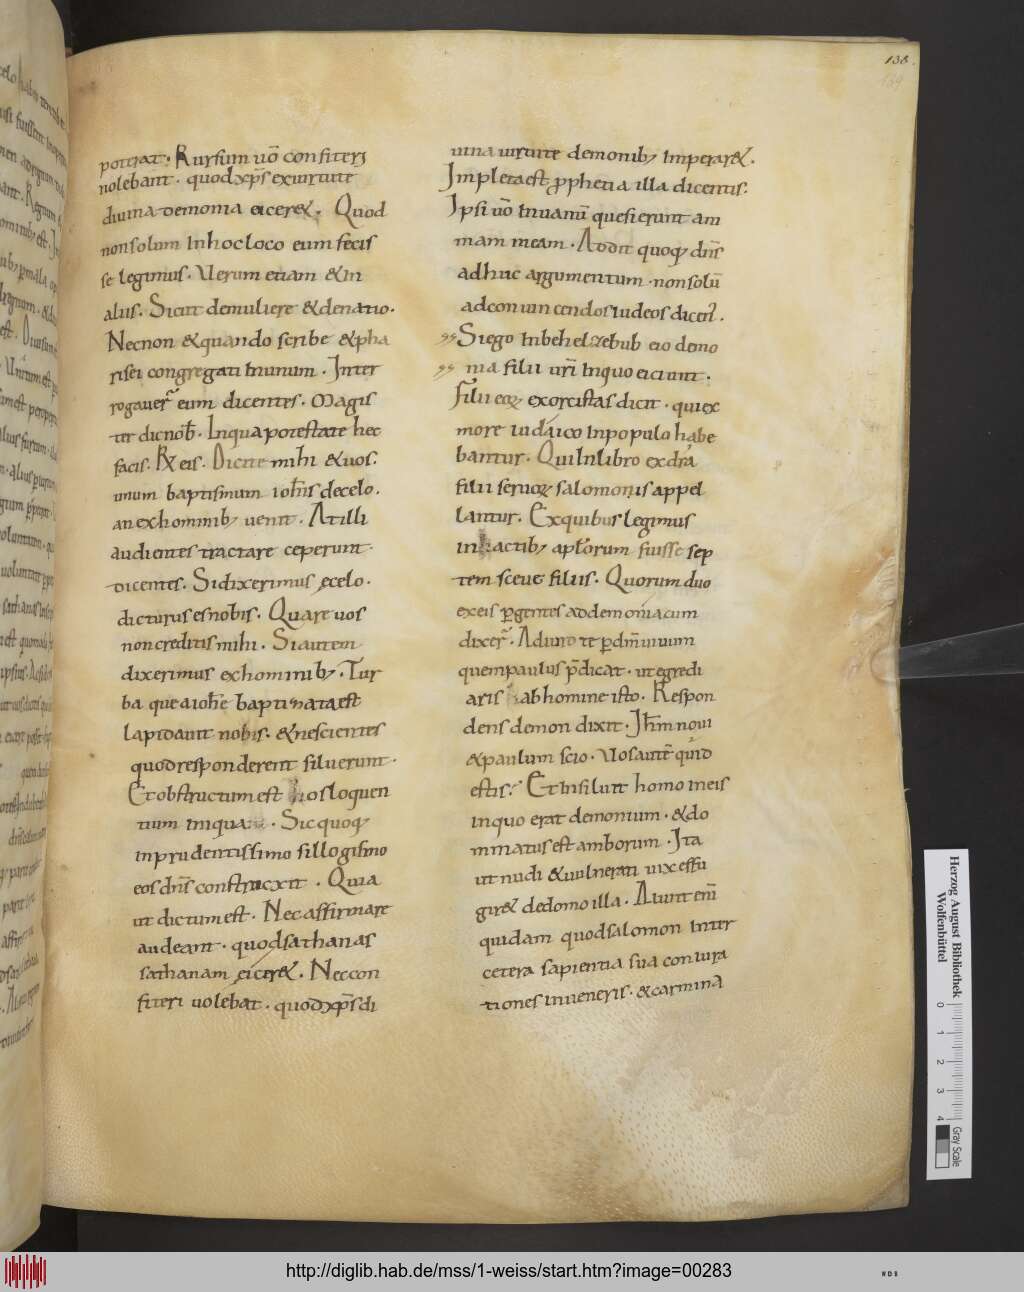 138.
139
potĩat. Rursum uõ confiteri
nolebant. quod xp̃s ex uirtute
diuina demonia eicer&. Quod
non solum In hoc loco eum fecis
se legimus. Uerum etiam & In
aliis. Sicut de muliere & de natio.
Necnon & quando scribe & pha
risei congregati In unum. Inter
rogauer̃ eum dicentes. Magis
ter dic nob̃. In qua potestate hec
facis. R& eis. Dicite mihi & uos.
unum baptismum ioh̃is de celo.
an ex hominib; uenit. At illi
audientes tractare ceperunt.
dicentes. Si dixerimus e celo.
dicturus es nobis. Quare uos
non creditis mihi. Si autem
dixerimus ex hominib;. Tur
ba que a ioh̃e baptizata est
lapidauit nobis. & nescientes
quod responderent siluerunt.
Et obstructum est os loquen
tium iniqua. Sic quoq;
inprudentissimo sillogismo
eos dñs construcxit. Quia
ut dictum est. Nec affirmare
audeant. quod sathanas
sathanam eicer&. Nec con
fiteri uolebat. quod xp̃s di
uina uirtute demonib; Imperar&.
Impleta est p̱phetia illa dicentis.
Ipsi uõ In uanũ quesierunt am
mam meam. Addit quoq; dñs
adhuc argumentum. non solũ
ad conuincendos Iudeos dicen̄.
Si ego In behelzebub eio demo
nia filii ur̃i In quo eiciunt.
Filii eoꝝ exorcistas dicit. qui ex
more iudaico In populo habe
bantur. Qui In libro exdra
filii seruoꝝ salomonis appel
lantur. Ex quibus legimus
in actib; apl̃orum fuisse sep
tem sceue filiis. Quorum duo
ex eis p̱gentes ad demoniacum
dixer̃. Adiuro te p̱ dm̃ uiuum
quem paulus p̄dicat. ut egredi
aris ab homine isto. Respon
dens demon dixit. Ih̃m noui
& paulum scio. Uos autẽ quid
estis. Et Insiluit homo In eis
In quo erat demonium. & do
minatus est amborum. Ita
ut nudi & uulnerati uix effu
gir& de domo illa. Aiunt enĩ
quidam quod salomon Inter
cetera sapientia sua coniura
tiones inueneris. & carmina
Herzog August Bibliothek
Wolfenbüttel
0 1 2 3 4
Gray Scale
http://diglib.hab.de/mss/1-weiss/start.htm?image=00283